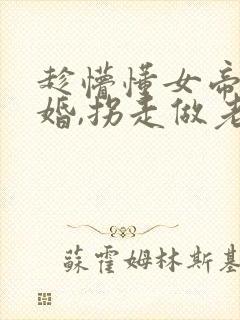 趁懵懂女帝
婚,拐走做老
蘇霍姆林斯基